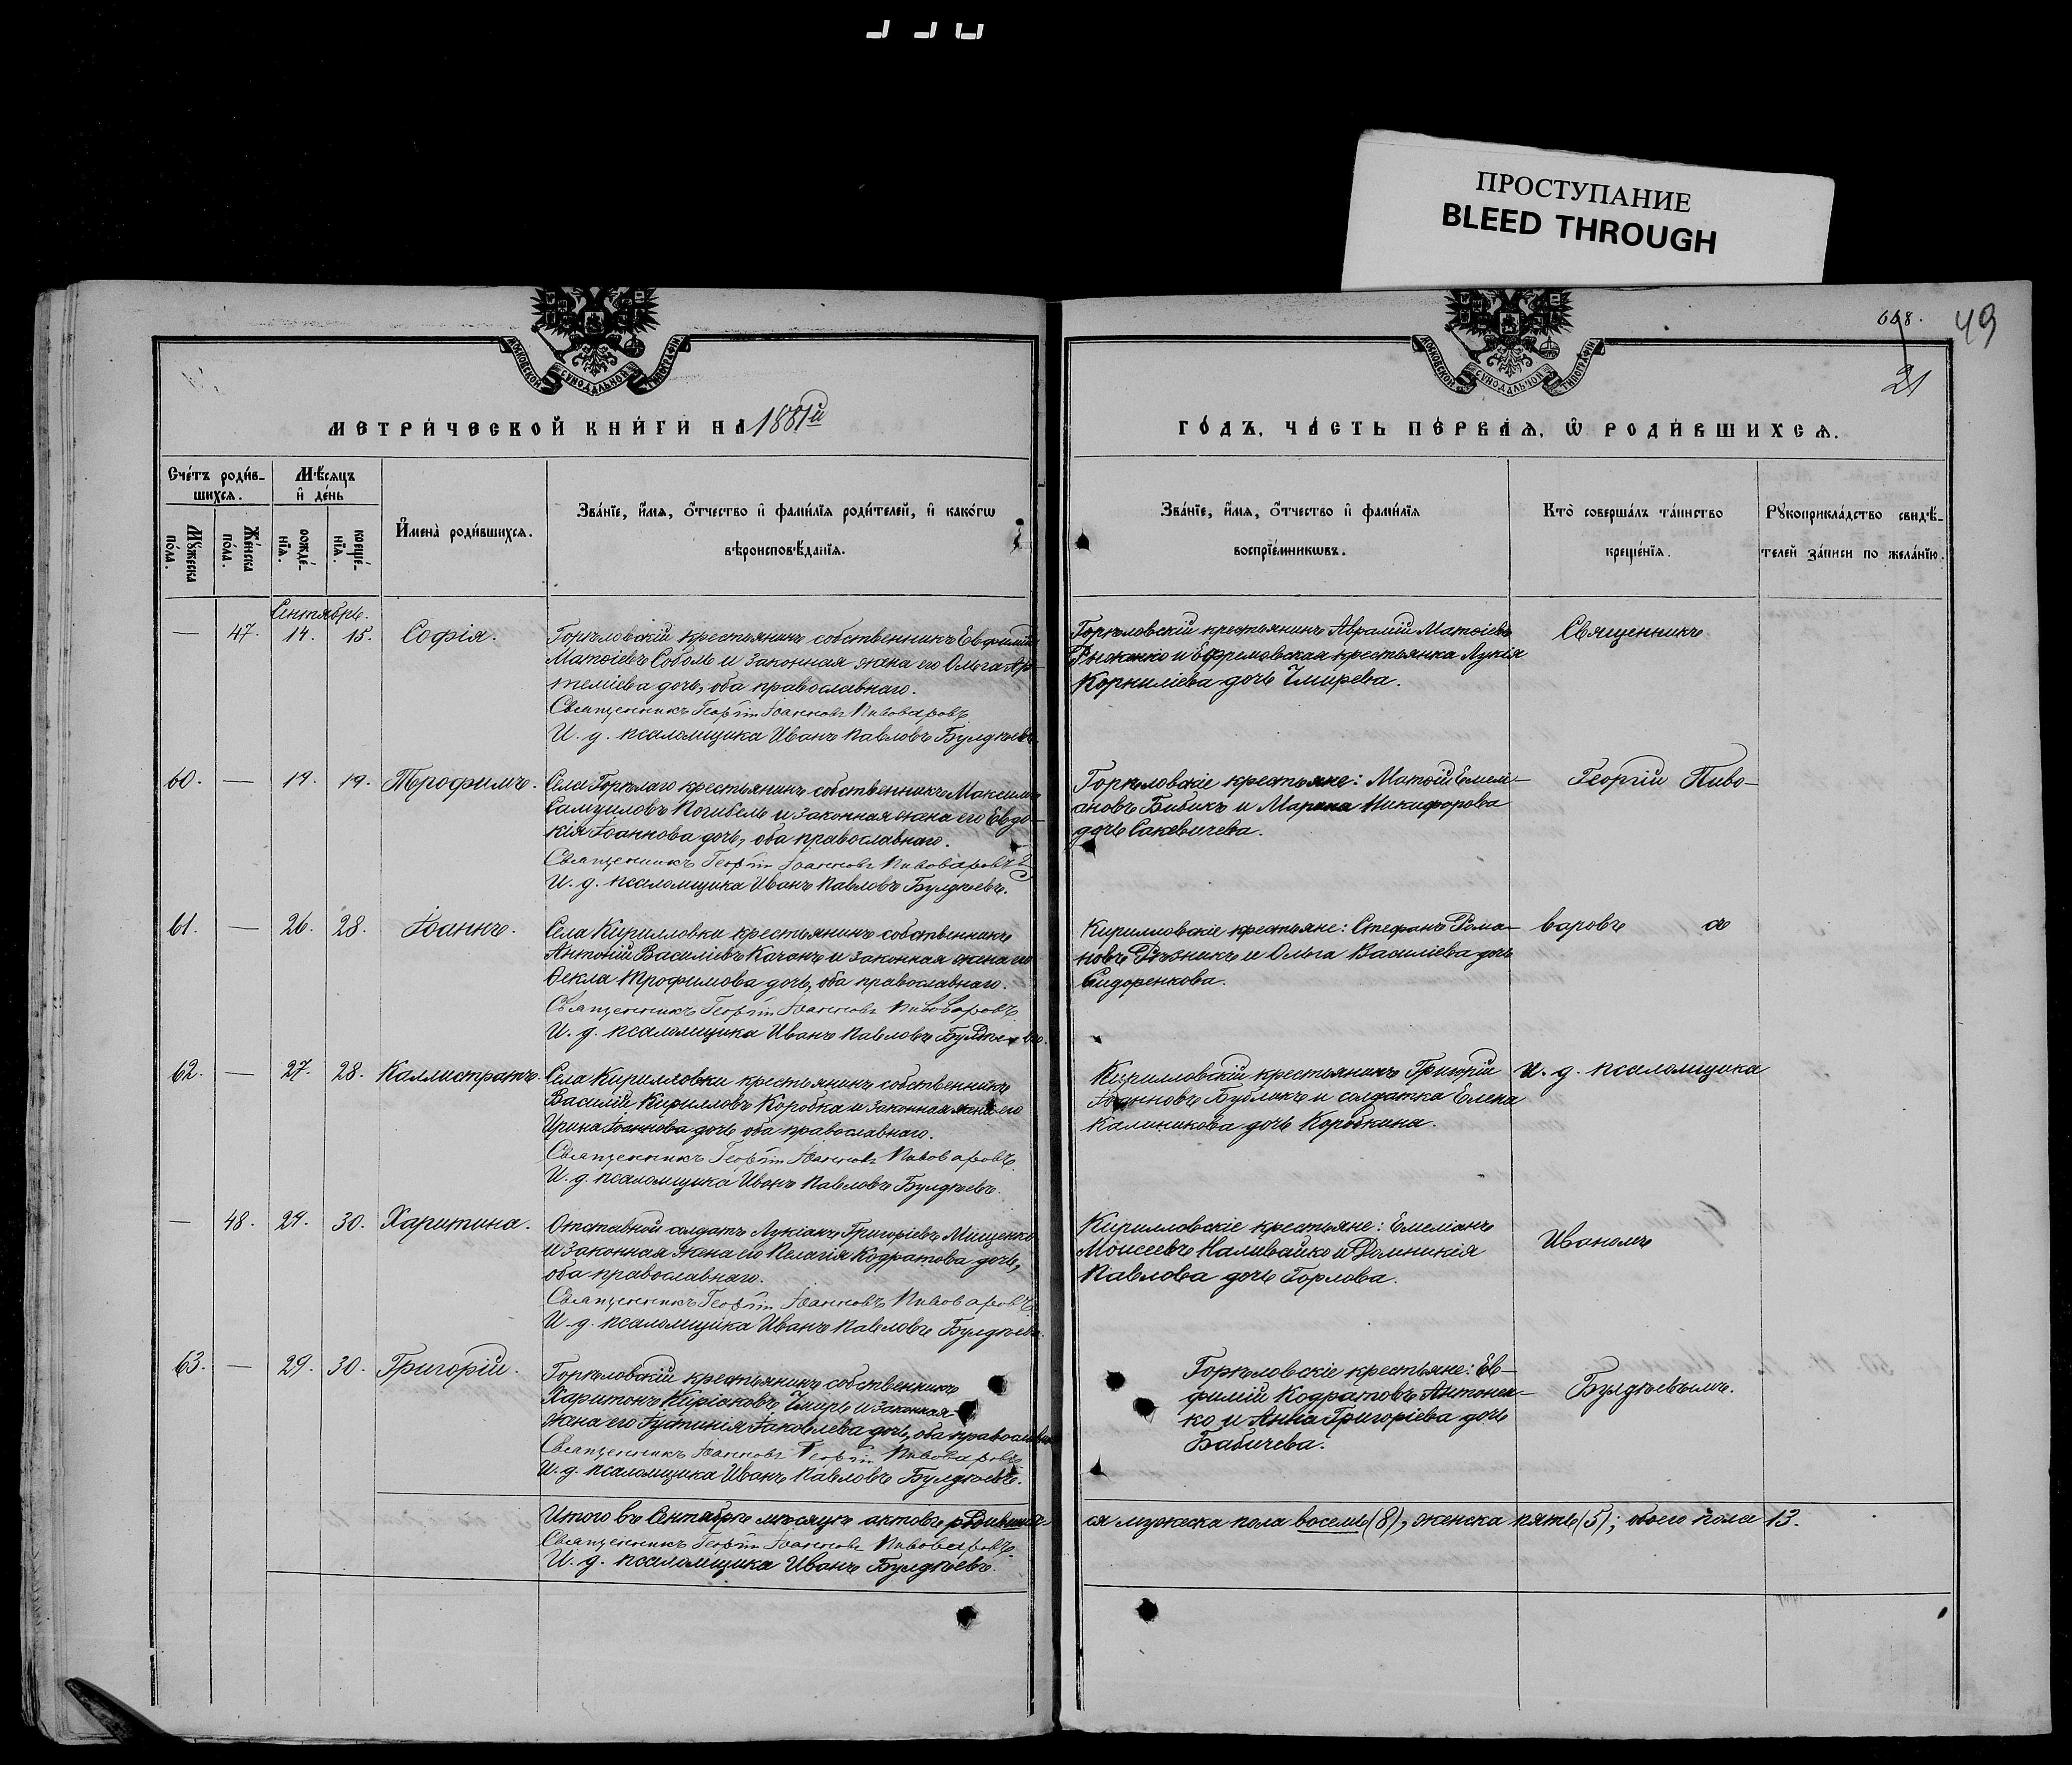 ПРОСТУПАНИЕ
BLEED THROUGH
668.
49
21
МОСКОВСКОЙ СѴНОДАЛЬНОЙ ТИПОГРАФІИ
МОСКОВСКОЙ СѴНОДАЛЬНОЙ ТИПОГРАФІИ
МЕТРИ́ЧЕСКОЙ КНИ́ГИ НА 1881й
ГО́ДЪ, ЧА́СТЬ ПЕ́РВАЯ, Ѡ РОДИ́ВШИХСЯ.
Сче́тъ роди́в-
шихся.
Мꙋжеска по́ла.
Же́нска по́ла.
Мѣ́сяцъ
и҆ де́нь
рожде́-
нїя.
креще́-
нїя.
И҆мена̀ роди́вшихся.
Зва́нїе, и҆́мя, ѻ҆́тчество и҆ фами́лїя роди́телей, и҆ како́гѡ
вѣроисповѣ́данїя.
Зва́нїе, и҆́мя, ѻ҆́тчество и҆ фами́лїя
воспрїе́мникѡвъ.
Кто̀ соверша́лъ та́инство
креще́нїя.
Рꙋкоприкла́дство свидѣ́-
телей за́писи по жела́нїю.
Сентябрь.
— 47. 14. 15. Софія.
Горѣловскій крестьянинъ собственникъ Евфимій
Матѳіевъ Соболь и законная жена его Ольга Ар-
теміева дочь, оба православнаго.
Священникъ Георгій Іоанновъ Пивоваровъ.
И. д. псаломщика Иванъ Павловъ Булдѣевъ.
Горѣловскій крестьянинъ Аврамій Матѳіевъ
Рыженко и Ефремовская крестьянка Лукія
Корниліева дочь Чмирева.
Священникъ
60. — 19. 19. Трофимъ.
Села Горѣлаго крестьянинъ собственникъ Максимъ
Самуиловъ Погибель и законная жена его Евдо-
кія Іоаннова дочь, оба православнаго.
Священникъ Георгій Іоанновъ Пивоваровъ
И. д. псаломщика Иванъ Павловъ Булдѣевъ.
Горѣловскіе крестьяне: Матѳій Емель-
ановъ Бибикъ и Марина Никифорова
дочь Сакевичева.
Георгій Пиво-
61. — 26. 28. Іоаннъ.
Села Кирилловки крестьянинъ собственникъ
Антоній Василіевъ Качанъ и законная жена его
Ѳекла Трофимова дочь, оба православнаго.
Священникъ Георгій Іоанновъ Пивоваровъ.
И. д. псаломщика Иванъ Павловъ Булдѣевъ.
Кирилловскіе крестьяне: Стефанъ Рома-
новъ Рѣзникъ и Ольга Василіева дочь
Сидоренкова.
варовъ съ
62. — 27. 28. Каллистратъ.
Села Кирилловки крестьянинъ собственникъ
Василій Кирилловъ Коробка и законная жена его
Ирина Іоаннова дочь оба православнаго.
Священникъ Георгій Іоанновъ Пивоваровъ.
И. д. псаломщика Иванъ Павловъ Булдѣевъ.
Кирилловскій крестьянинъ Григорій
Іоанновъ Бубликъ и солдатка Елена
Калиникова дочь Коробкина.
И. д. псаломщика
— 48. 29. 30. Харитина.
Отставной солдатъ Лукіанъ Григоріевъ Мищенко
и законная жена его Пелагія Кодратова дочь,
оба православнаго.
Священникъ Георгій Іоанновъ Пивоваровъ.
И. д. псаломщика Иванъ Павловъ Булдѣевъ.
Кирилловскіе крестьяне: Емеліанъ
Моисеевъ Наливайко и Домникія
Павлова дочь Горлова.
Иваномъ
63. — 29. 30. Григорій.
Горѣловскій крестьянинъ собственникъ
Харитонъ Киріаковъ Чмирь и законная
жена его Іустинія Іаковлева дочь, оба православн.
Священникъ Іоанновъ Георгій Пивоваровъ
И. д. псаломщика Иванъ Павловъ Булдѣевъ.
Горѣловскіе крестьяне: Ев-
фимій Кодратовъ Антонен-
ко и Анна Григоріева дочь
Бабичева.
Булдѣевымъ.
Итого въ Сентябрѣ мѣсяцѣ актовъ родивших-
ся мужеска пола восемь (8), женска пять (5); обоего пола 13.
Священникъ Георгій Іоанновъ Пивоваровъ.
И. д. псаломщика Иванъ Булдѣевъ.